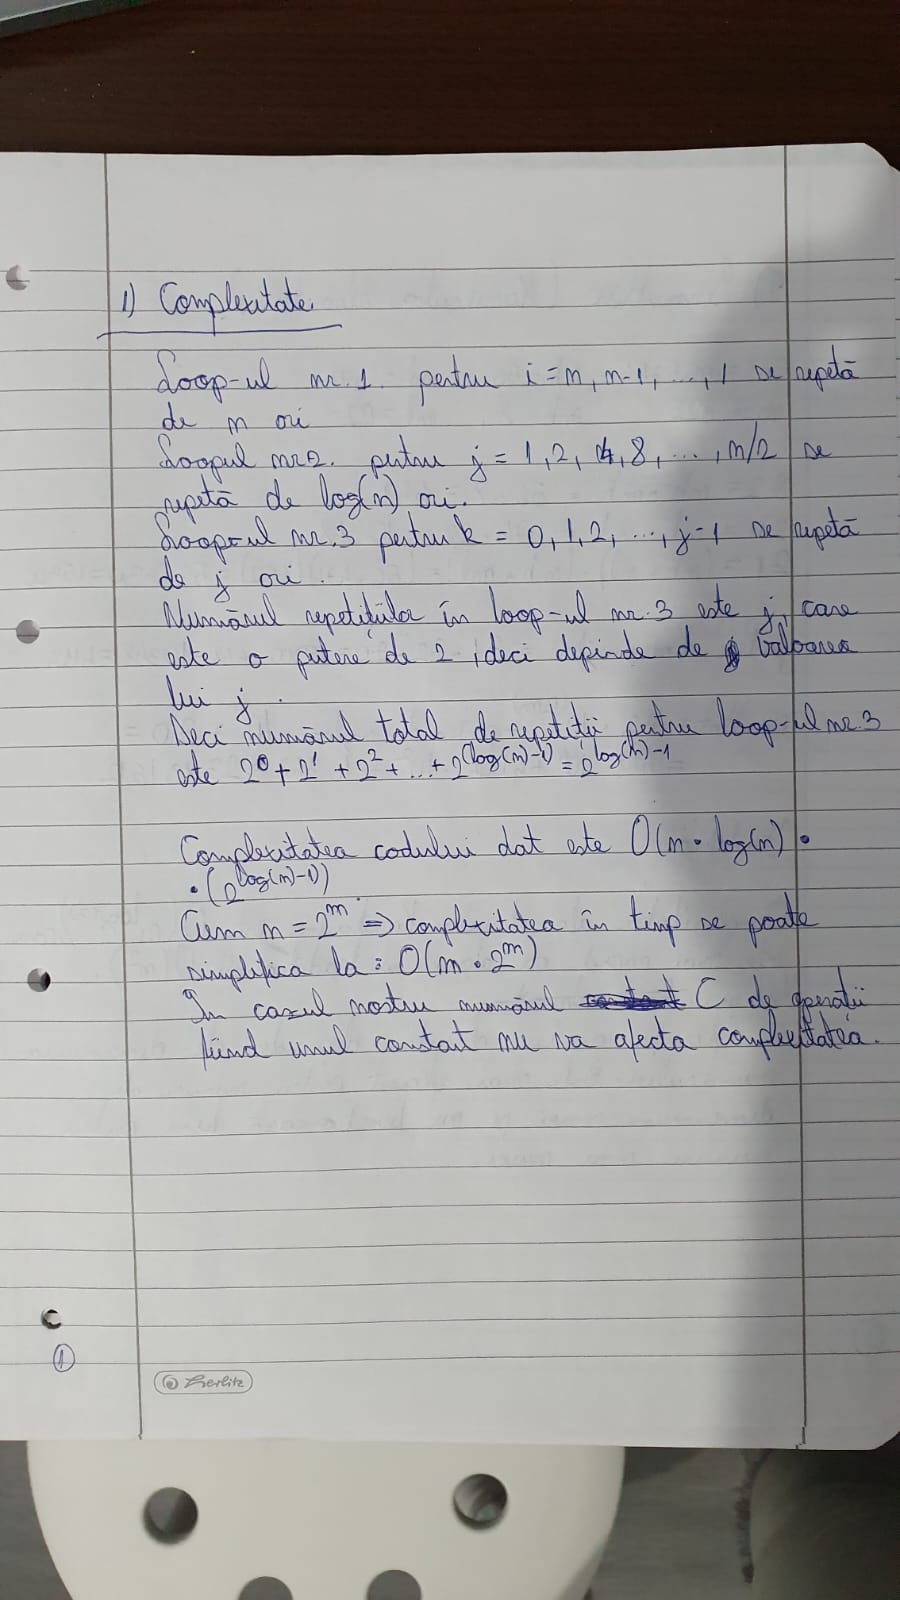 1) Complexitate
Loop-ul nr. 1. pentru i = n, n-1, ..., 1 se repetă
de n ori
Loopul nr 2. pentru j = 1, 2, 4, 8, ..., n/2 se
repetă de log(n) ori.
Loop-ul nr. 3 pentru k = 0, 1, 2, ..., j-1 se repetă
de j ori.
Numărul repetițiilor în loop-ul nr. 3 este j, care
este o putere de 2, deci depinde de valoarea
lui j.
Deci numărul total de repetiții pentru loop-ul nr. 3
este 2⁰ + 2¹ + 2² + ... + 2^(log(n)-1) = 2^log(n)-1
Complexitatea codului dat este O(n · log(n) ·
· (2^log(n)-1))
Cum n = 2^m => complexitatea în timp se poate
simplifica la: O(m · 2^m)
In cazul nostru numărul C de operații
fiind unul constat nu va afecta complexitatea.
1
herlitz